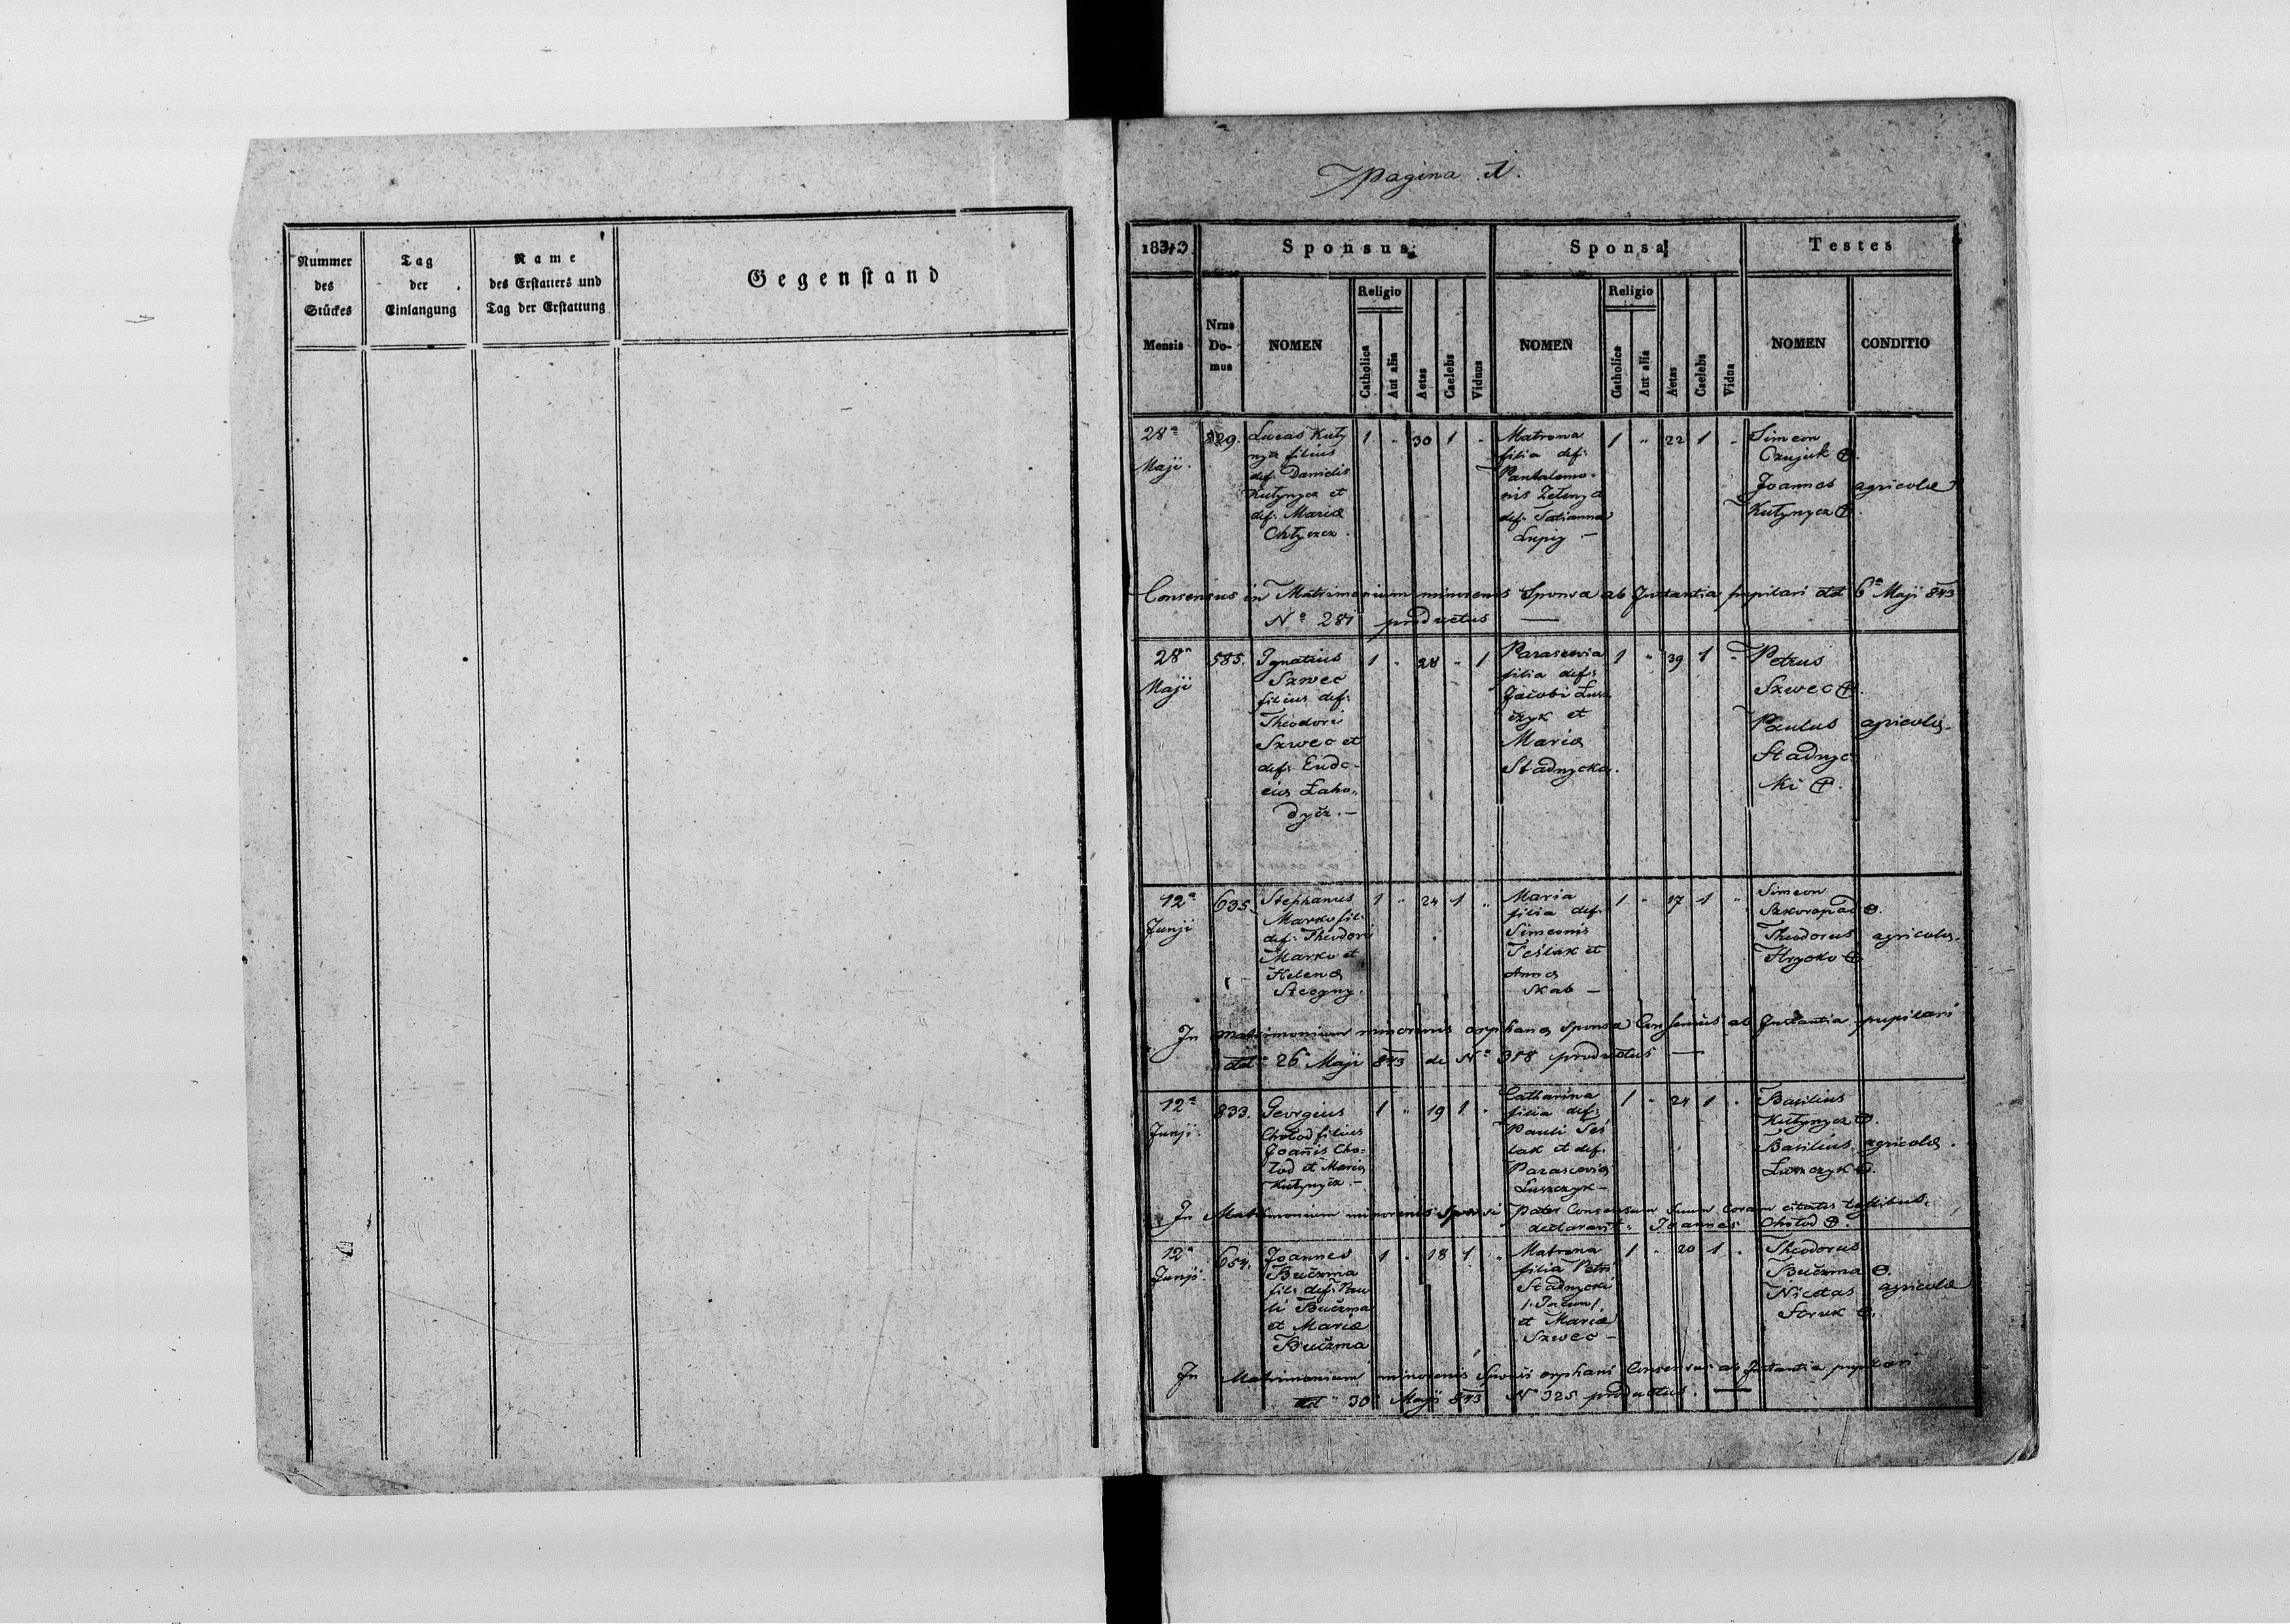 Nummer
des
Stückes
Tag
der
Einlangung
Name
des Erstatters und
Tag der Erstattung
Gegenstand
Pagina 1.
1843.
Sponsus
Sponsa
Testes
Mensis
Nrus
Do-
mus
NOMEN
Religio
Catholica
Aut alia
Aetas
Caelebs
Viduus
NOMEN
Religio
Catholica
Aut alia
Aetas
Caelebs
Vidua
NOMEN
CONDITIO
28a
Maji.
829.
Lucas Kuty
nycz filius
def: Danielis
Kutynycz et
def: Mariæ
1 " 30 1 "
Matrona
filia def:
Pantalemo-
nis
def: Tatianna
1 " 22 1 "
Simeon
Joannes
Kutynycz
agricolæ
Consensus in Matrimonium minorenis Sponsa ab Instantia pupilari dd 6a Maji 843
No 281 productus —
28a
Maji
585.
Ignatius
Szwec
filius def:
Theodori
Szwec et
def: Eudo-
ciæ Laho-
dycz. —
1 " 28 " 1
Parascevia
filia def:
Jacobi Lusz
czyk et
Mariæ
Stadnycka.
1 " 39 1 "
Petrus
Szwec
Paulus
Stadnyc
ki
agricolæ.
12a
Junji
635.
Stephanus
Marko fil:
def: Theodori
Marko et
Helenæ
1 " 24 1 "
Maria
filia def:
Simeonis
Teslak et
Annæ
Skab —
1 " 17 1 "
Simeon
Szkoropad
Theodorus
Hrycko
agricolæ.
In matrimonium minorenis orphanæ Sponsa Consensus ab Instantia pupilari
dd 26a Maji 843 de No 318 productus —
12a
Junji
833.
Georgius
Cholod filius
Joannis Cho-
lod et Mariæ
Kutynycz. —
1 " 19 1 "
Catharina
filia def:
Pauli Tes
lak et def:
Parasceviæ
Luszczyk —
1 " 24 1 "
Basilius
Kutynycz
Basilius
Luszczyk
agricolæ.
In Matrimonium minorenis Sponsi pater Consensum Suum Coram citatis testibus
declaravit: Joannes Cholod
12a
Junji.
654.
Joannes
Buczma
fil: def: Pau
li Buczma
et Mariæ
Buczma
1 " 18 1 "
Matrona
filia Petri
Stadnycki
et Mariæ
Szwec —
1 " 20 1 "
Theodorus
Buczma
Nicolas
Struk
agricolæ
In Matrimonium minorenis Sponsi orphani Consensus ab Instantia pupilari
dd 30 Maji 843 No 325 productus. —